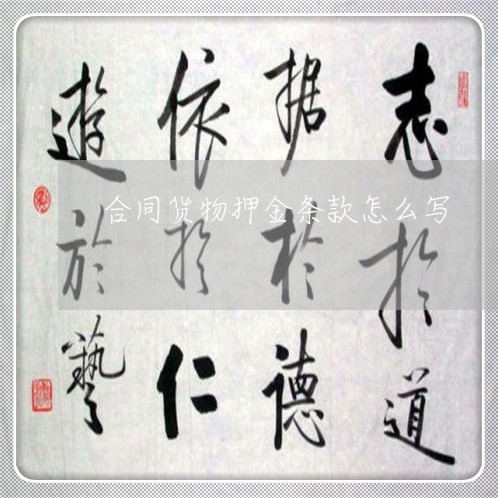 志於道
据於德
依於仁
遊於藝
合同货物押金条款怎么写